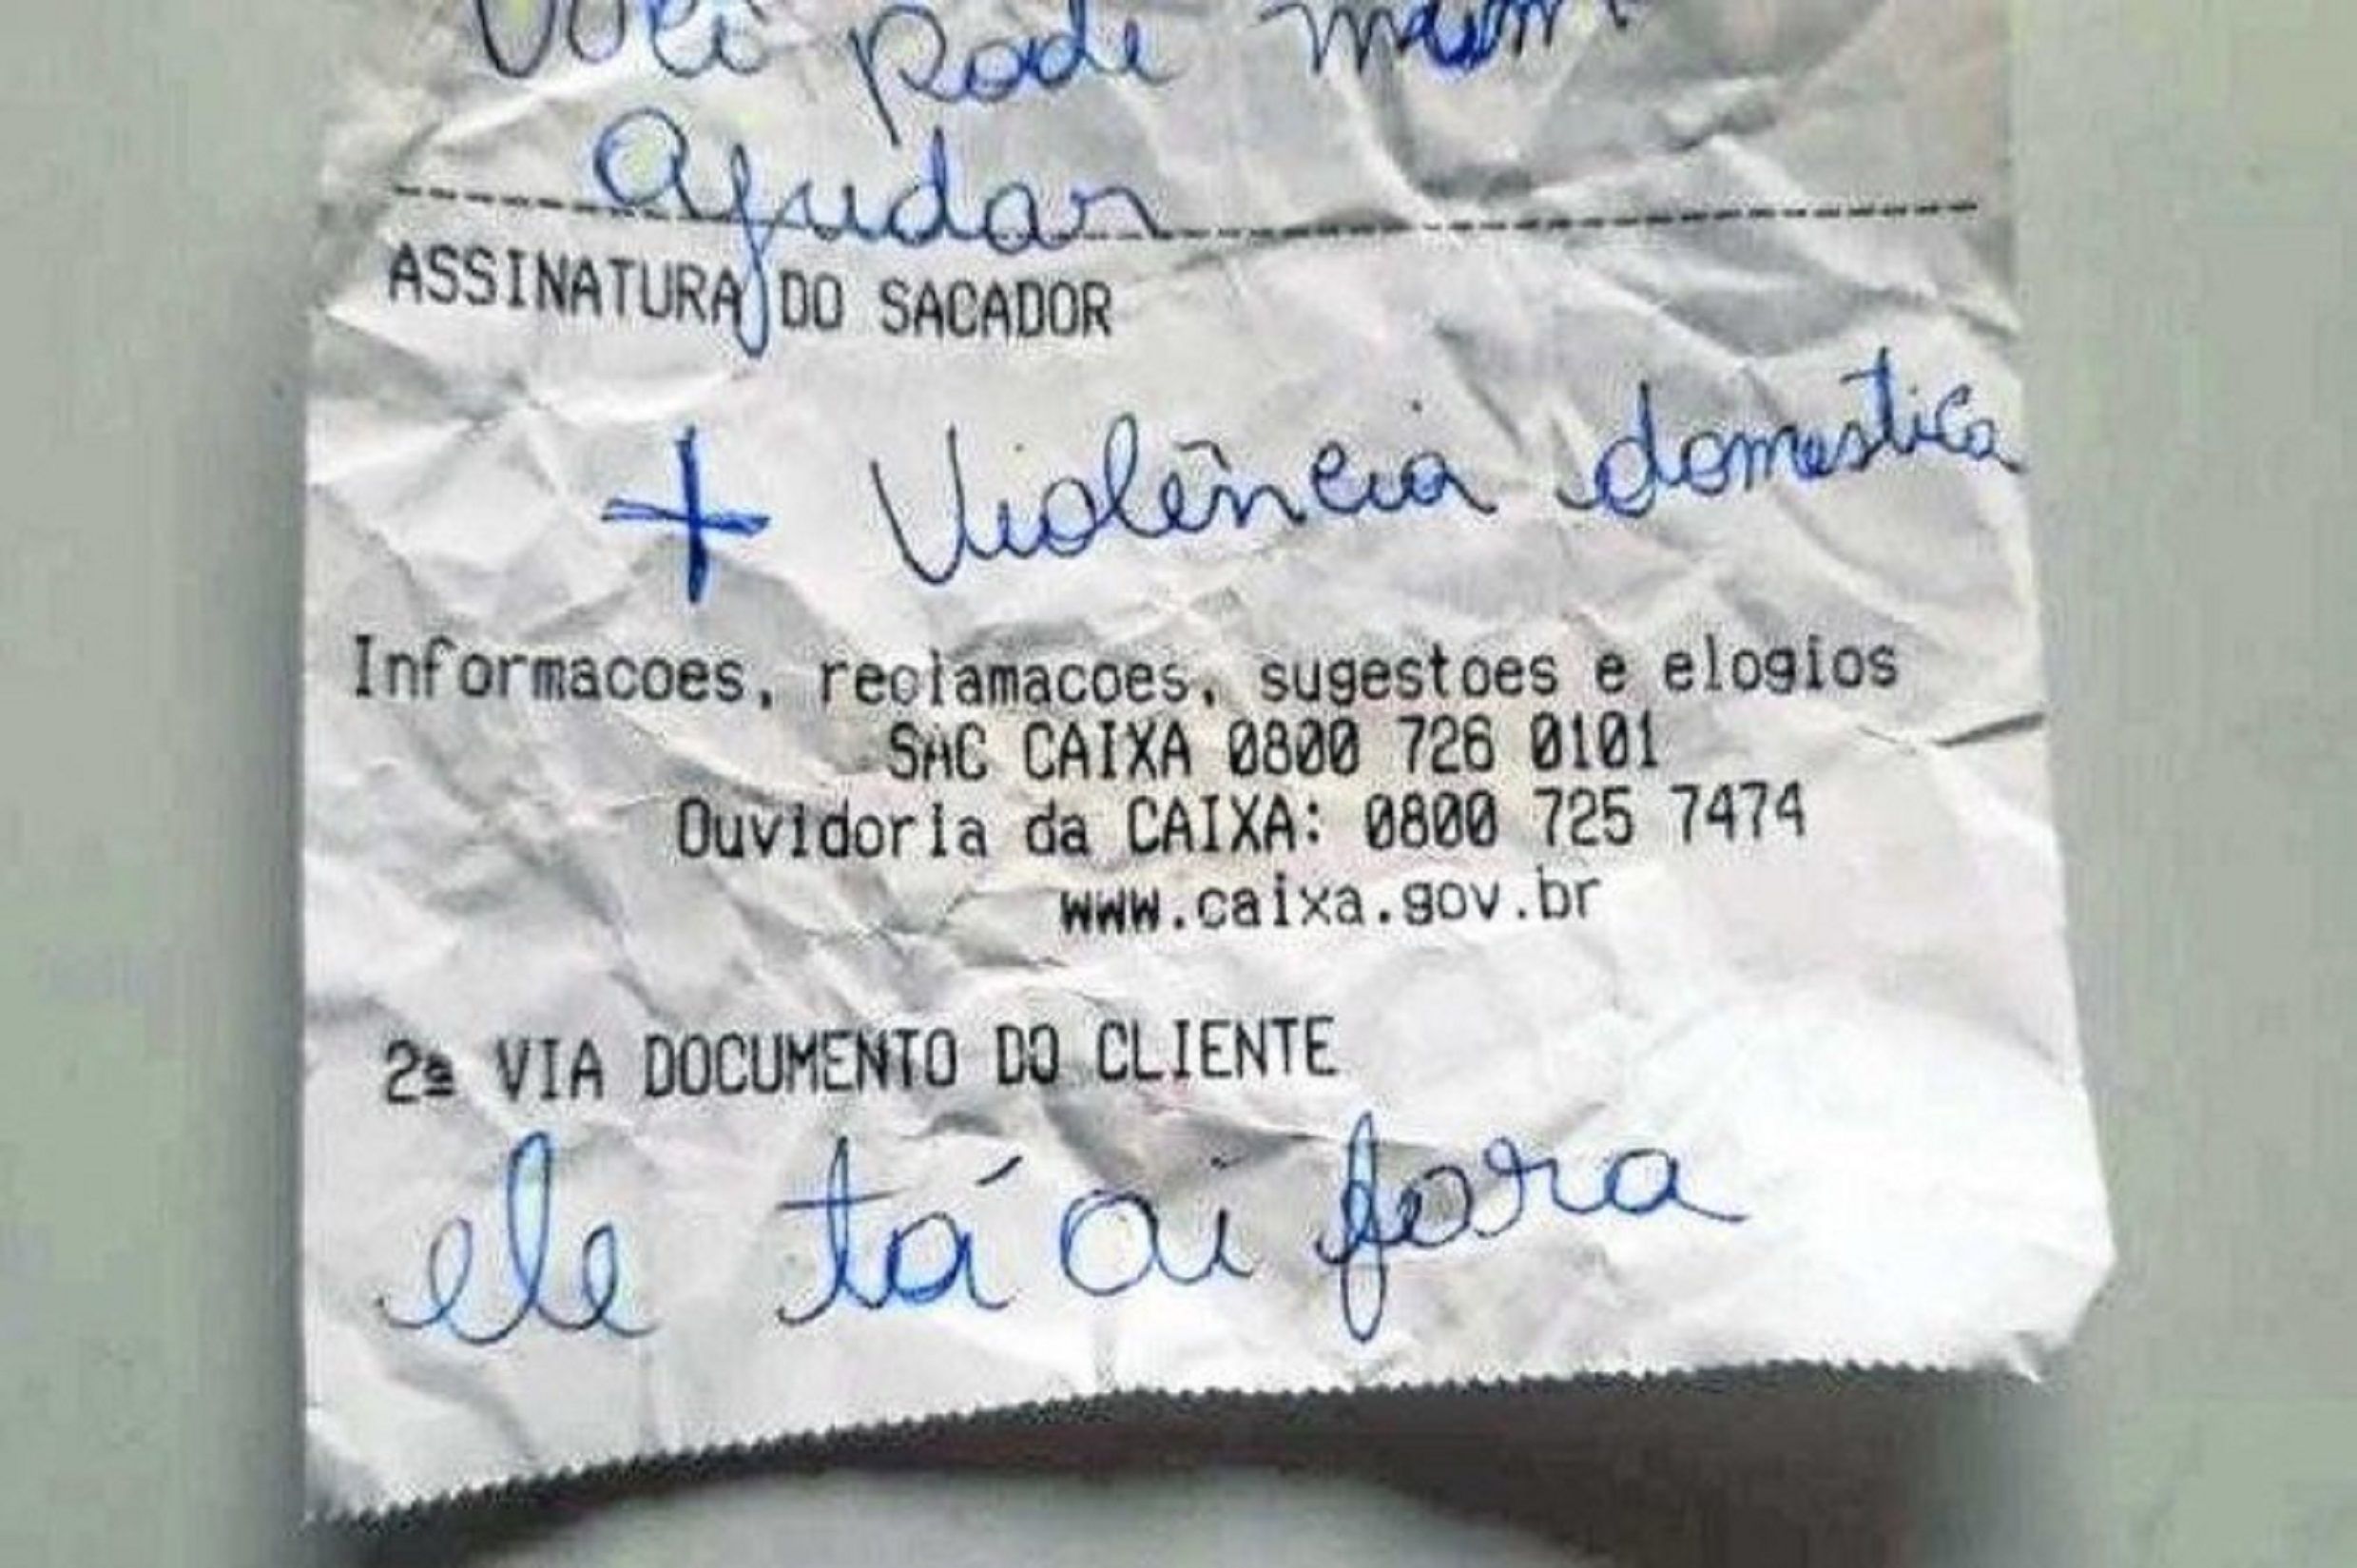 Você pode
Ajudar
ASSINATURA DO SACADOR
+ Violência domestica
Informacoes, reclamacoes, sugestoes e elogios
SAC CAIXA 0800 726 0101
Ouvidoria da CAIXA: 0800 725 7474
www.caixa.gov.br
2ª VIA DOCUMENTO DO CLIENTE
ele tá ai fora